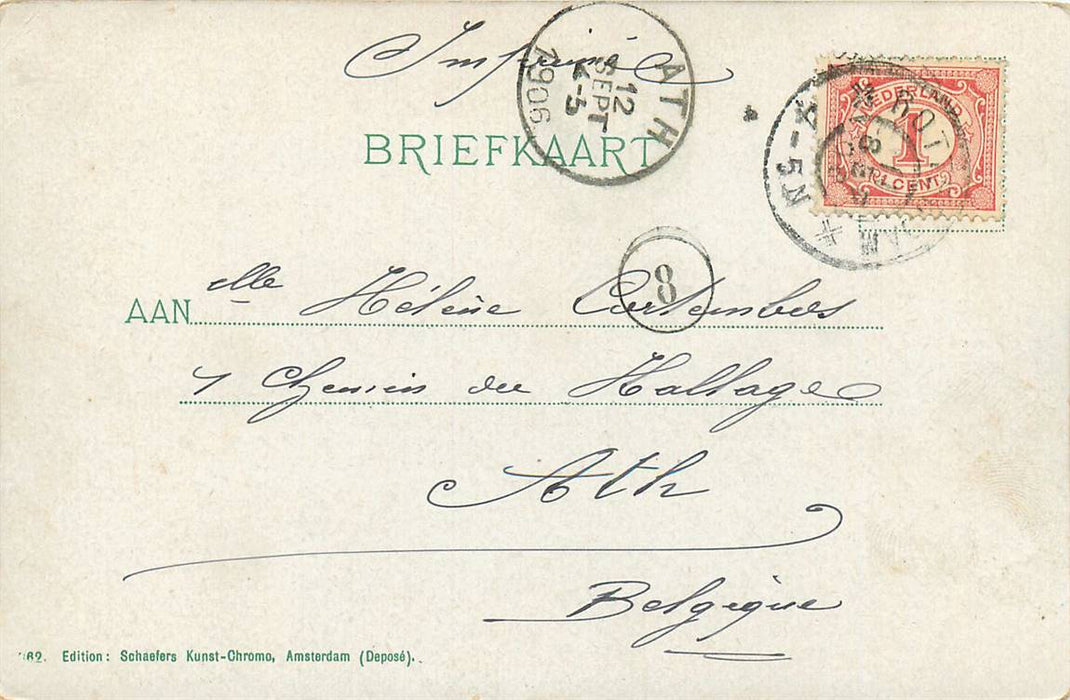 Imprimé
ATH
12
SEPT
4-5
1906
NEDERLAND
1
1 CENT
ROTTERDAM
4-5N
BRIEFKAART
8
AAN Mlle Hélène
Chemin du Hallage
Ath
Belgique
62. Edition: Schaefers Kunst-Chromo, Amsterdam (Deposé).